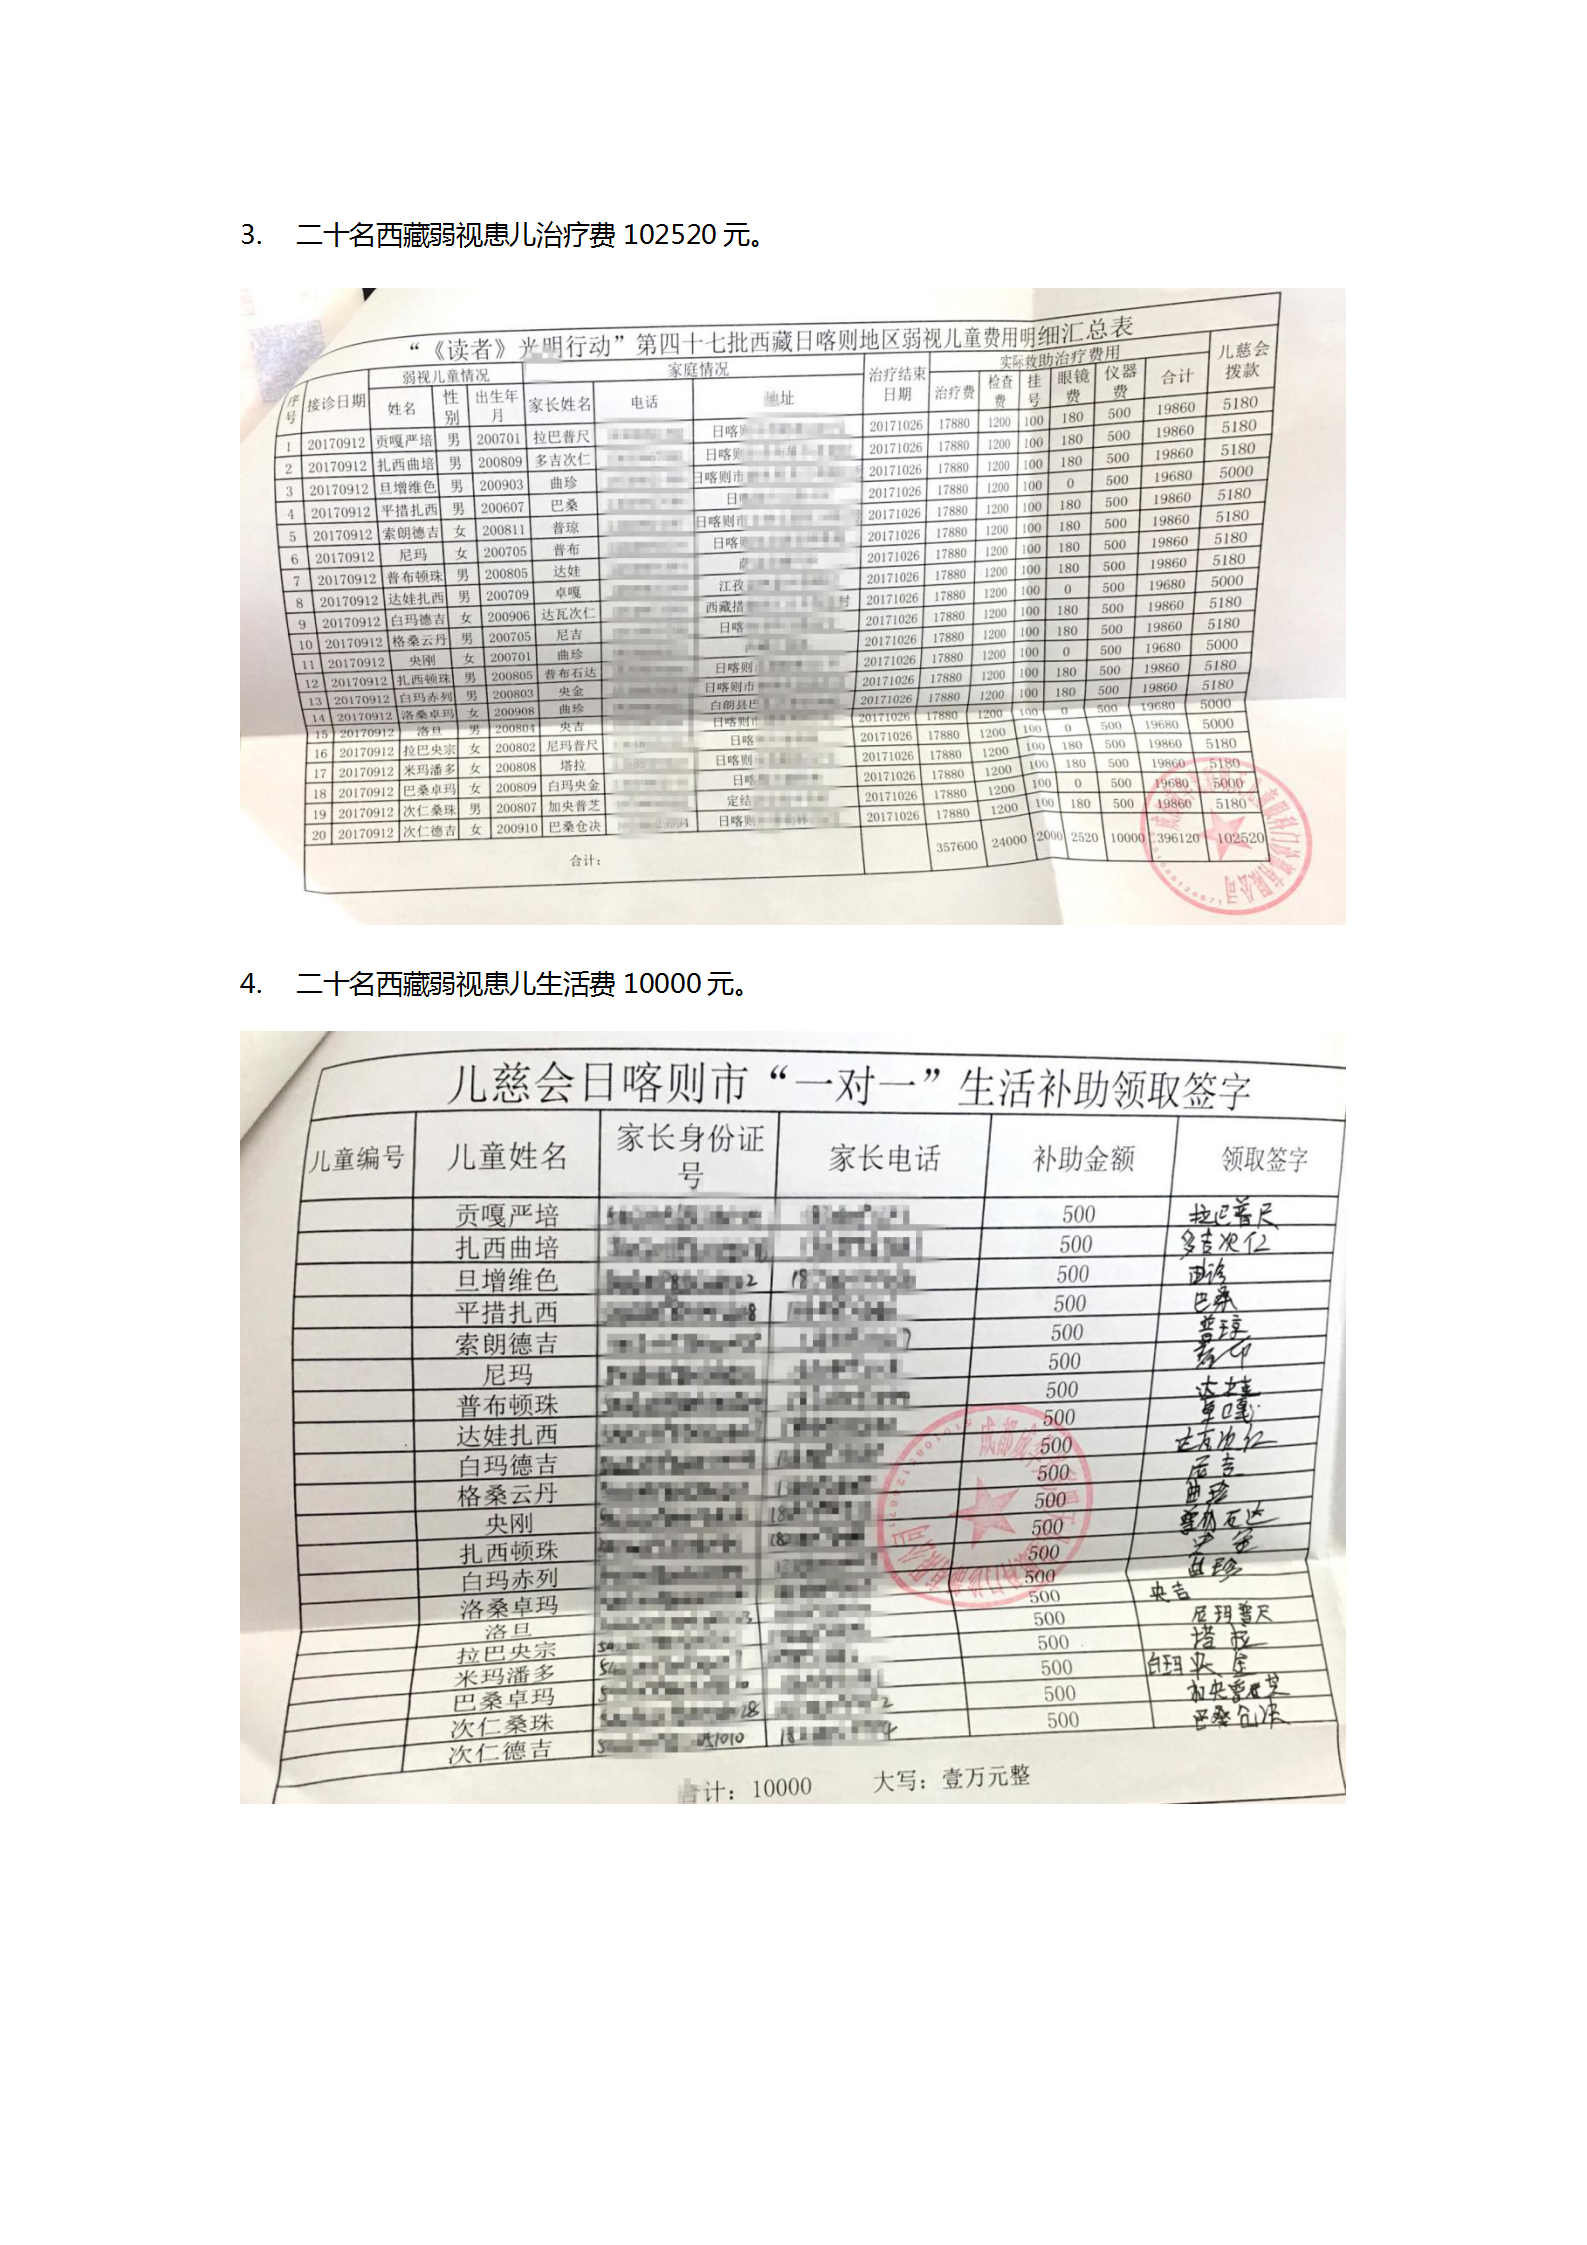 3. 二十名西藏弱视患儿治疗费 102520 元。
“《读者》光明行动”第四十七批西藏日喀则地区弱视儿童费用明细汇总表
序号 接诊日期 弱视儿童情况 家庭情况 治疗结束日期 实际救助治疗费用 儿慈会拨款
姓名 性别 出生年月 家长姓名 电话 地址 治疗费 检查费 挂号 眼镜费 仪器费 合计
1 20170912 贡嘎严培 男 200701 拉巴普尺 日喀则 20171026 17880 1200 100 180 500 19860 5180
2 20170912 扎西曲培 男 200809 多吉次仁 日喀则 20171026 17880 1200 100 180 500 19860 5180
3 20170912 旦增维色 男 200903 曲珍 日喀则市 20171026 17880 1200 100 180 500 19860 5180
4 20170912 平措扎西 男 200607 巴桑 日 20171026 17880 1200 100 0 500 19680 5000
5 20170912 索朗德吉 女 200811 普琼 日喀则市 20171026 17880 1200 100 180 500 19860 5180
6 20170912 尼玛 女 200705 普布 日喀则 20171026 17880 1200 100 180 500 19860 5180
7 20170912 普布顿珠 男 200805 达娃 20171026 17880 1200 100 180 500 19860 5180
8 20170912 达娃扎西 男 200709 卓嘎 江孜 20171026 17880 1200 100 180 500 19860 5180
9 20170912 白玛德吉 女 200906 达瓦次仁 西藏措 村 20171026 17880 1200 100 0 500 19680 5000
10 20170912 格桑云丹 男 200705 尼吉 日喀 20171026 17880 1200 100 180 500 19860 5180
11 20170912 央刚 女 200701 曲珍 20171026 17880 1200 100 180 500 19860 5180
12 20170912 扎西顿珠 男 200805 普布石达 日喀则 20171026 17880 1200 100 0 500 19680 5000
13 20170912 白玛赤列 男 200803 央金 日喀则市 20171026 17880 1200 100 180 500 19860 5180
14 20170912 洛桑卓玛 女 200908 曲珍 白朗县巴 20171026 17880 1200 100 180 500 19860 5180
15 20170912 洛旦 男 200804 央吉 日喀则市 20171026 17880 1200 100 0 500 19680 5000
16 20170912 拉巴央宗 女 200802 尼玛普尺 日喀 20171026 17880 1200 100 0 500 19680 5000
17 20170912 米玛潘多 女 200808 塔拉 日喀则 20171026 17880 1200 100 180 500 19860 5180
18 20170912 巴桑卓玛 女 200809 白玛央金 日喀 20171026 17880 1200 100 180 500 19860 5180
19 20170912 次仁桑珠 男 200807 加央普芝 定结 20171026 17880 1200 100 0 500 19680 5000
20 20170912 次仁德吉 女 200910 巴桑仓决 日喀则 20171026 17880 1200 100 180 500 19860 5180
合计： 357600 24000 2000 2520 10000 396120 102520
4. 二十名西藏弱视患儿生活费 10000 元。
儿慈会日喀则市“一对一”生活补助领取签字
儿童编号 儿童姓名 家长身份证号 家长电话 补助金额 领取签字
贡嘎严培 500 拉巴普尺
扎西曲培 500 多吉次仁
旦增维色 500 曲珍
平措扎西 500 巴桑
索朗德吉 500 普琼
尼玛 500 普布
普布顿珠 500 达娃
达娃扎西 500 卓嘎
白玛德吉 500 达瓦次仁
格桑云丹 500 尼吉
央刚 500 曲珍
扎西顿珠 500 普布石达
白玛赤列 500 央金
洛桑卓玛 500 曲珍
洛旦 500 央吉
拉巴央宗 500 尼玛普尺
米玛潘多 500 塔拉
巴桑卓玛 500 白玛央金
次仁桑珠 500 加央普芝
次仁德吉 500 巴桑仓决
合计：10000 大写：壹万元整